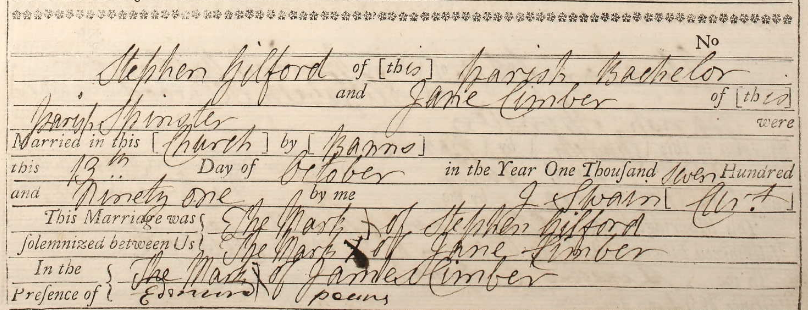 No
Stephen Gilford of [this] Parish Bachelor
and Jane Cimber of [this]
Parish Spinster were
Married in this [Church] by [Banns]
this 13th Day of October in the Year One Thousand Seven Hundred
and Ninety one by me J Swain [Curt]
This Marriage was { The Mark of Stephen Gilford
solemnized between Us { The Mark X of Jane Cimber
In the { The Mark of James Cimber
Presence of { Edmund